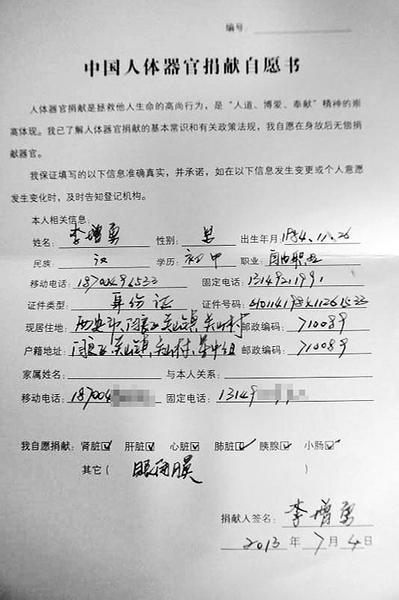 编号:
中国人体器官捐献自愿书
人体器官捐献是拯救他人生命的高尚行为，是“人道、博爱、奉献”精神的崇
高体现。我已了解人体器官捐献的基本常识和有关政策法规，我自愿在身故后无偿捐
献器官。
我保证填写的以下信息准确真实，并承诺，如在以下信息发生变更或个人意愿
发生变化时，及时告知登记机构。
本人相关信息:
姓名: 李增勇 性别: 男 出生年月 1984.11.26
民族: 汉 学历: 初中 职业: 自由职业
移动电话: 固定电话:
证件类型: 身份证 证件号码:
现居住地: 西安市 关山镇关山村 邮政编码: 710089
户籍地址: 关山镇 邮政编码: 710089
家属姓名: 与本人关系:
移动电话: 187004 固定电话: 13149
我自愿捐献: 肾脏☑ 肝脏☑ 心脏☑ 肺脏☑ 胰腺☑ 小肠☑
其它 ( 眼角膜 )
捐献人签名: 李增勇
2013 年 7 月 4 日